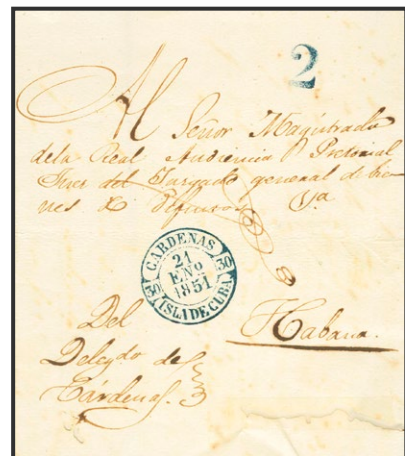 2
Al Señor Magistrado
dela Real Audiencia Pretorial
Juez del Juzgado general de bie
nes de Difuntos &a
CARDENAS
30 30
21
ENº
1851
ISLA DE CUBA
Del
Delegdo de
Cárdenas.
Habana.